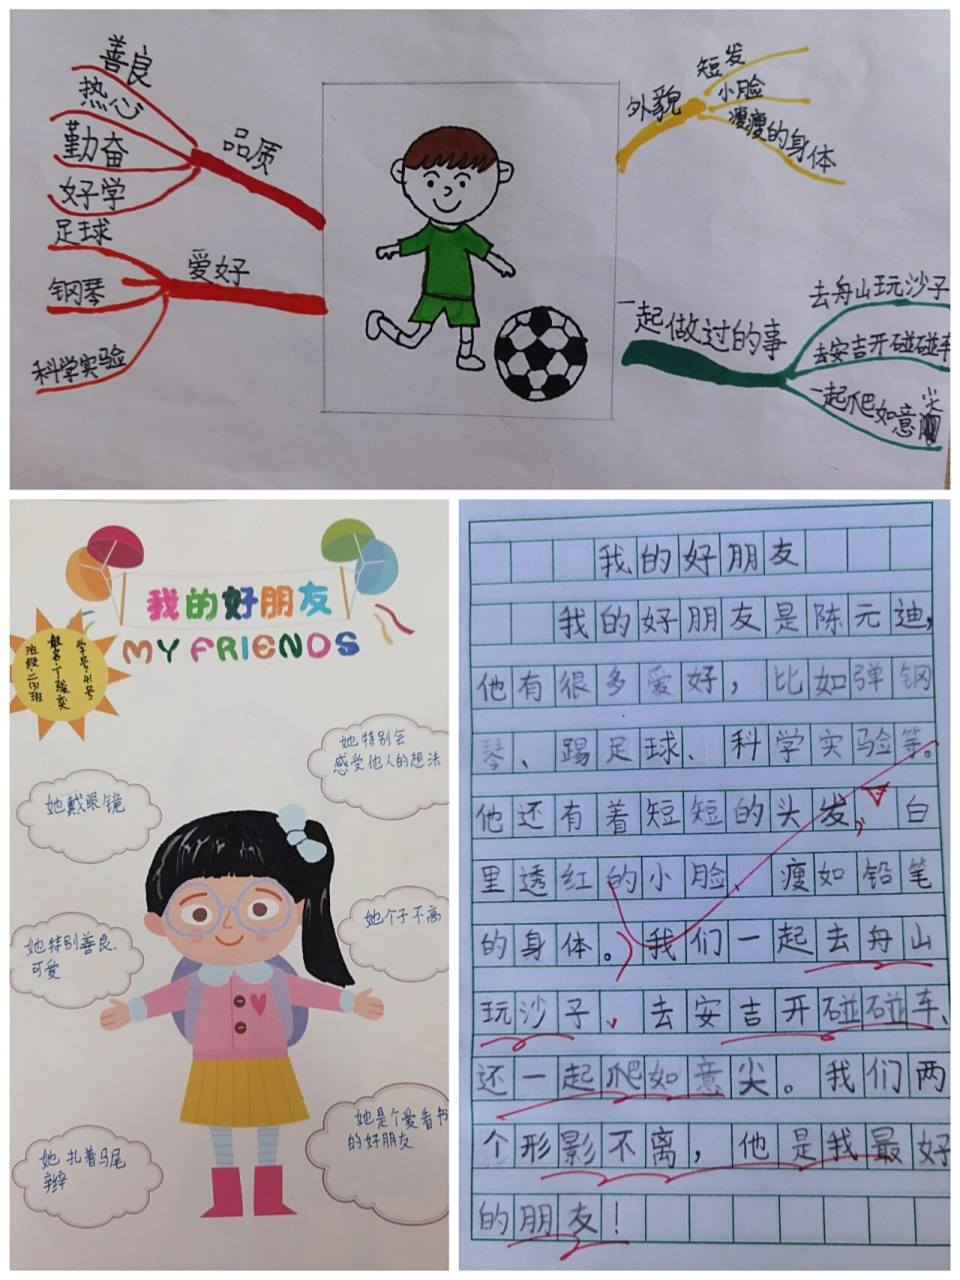 善良
热心
勤奋
好学
品质
足球
钢琴
科学实验
爱好
外貌
短发
小脸
瘦瘦的身体
一起做过的事
去舟山玩沙子
去安吉开碰碰车
一起爬如意尖
我的好朋友
MY FRIENDS
学号:41号
班级:二(3)班
她特别会
感受他人的想法
她戴眼镜
她个子不高
她特别善良、
可爱
她是个爱看书
的好朋友
她扎着马尾
辫
我的好朋友
我的好朋友是陈元迪,
他有很多爱好,比如弹钢
琴、踢足球、科学实验等。
他还有着短短的头发,白
里透红的小脸、瘦如铅笔
的身体。我们一起去舟山
玩沙子、去安吉开碰碰车、
还一起爬如意尖。我们两
个形影不离,他是我最好
的朋友!